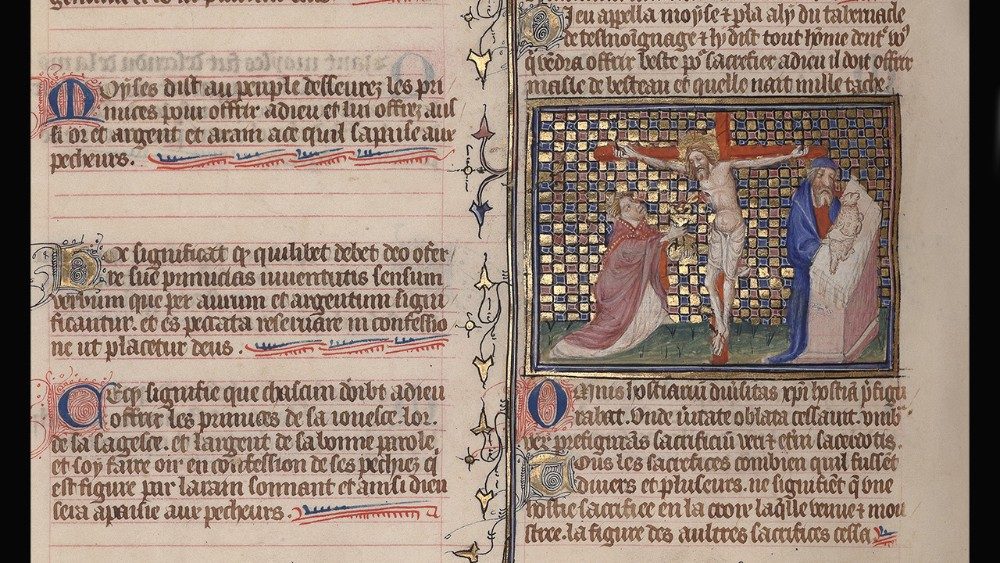 Moyses dist au peuple desseurez les pri
mices pour offrir a dieu et lui offrez aus
si or et argent et arain a ce quil sapaise aux
pecheurs.
Hoc significat qͥ quilibet debet deo offer
re sue primicias iuuentutis sensum
verbum que per aurum et argentum signi
ficantur. et es peccata reserare in confessio
ne ut placetur deus.
Cecy signifie que chascun doibt a dieu
offrir les primices de sa ionesce. lor.
de sa sagesce. et largent de sa bonne parole.
et soy faire oir en confession de ses pechiez qͥ
est figure par larain sonnant et ainsi dieu
sera apaisie aux pecheurs.
Dieu appella moyse & pla a ly du tabernacle
de tesmoignage & ly dist tout home dent' vo9
q vodra offrir beste po' sacrefier a dieu il doit offrir
masle de besteau et quelle nait nulle tache.
Omnis hostiarū diuersitas xpī hostiā p̄figu
rabat. Unde ūitate oblata cessaūt. umbͬ
per prefigurās sacrificiū veri & etͥni sacerdotis.
Tous les sacrefices combien quil fussēt
diuers et pluseurs. ne signifiēt q̄ vne
hostie sacrefice en la croix laq̄lle venue & mou
stree. la figure des aultres sacrefices cessa